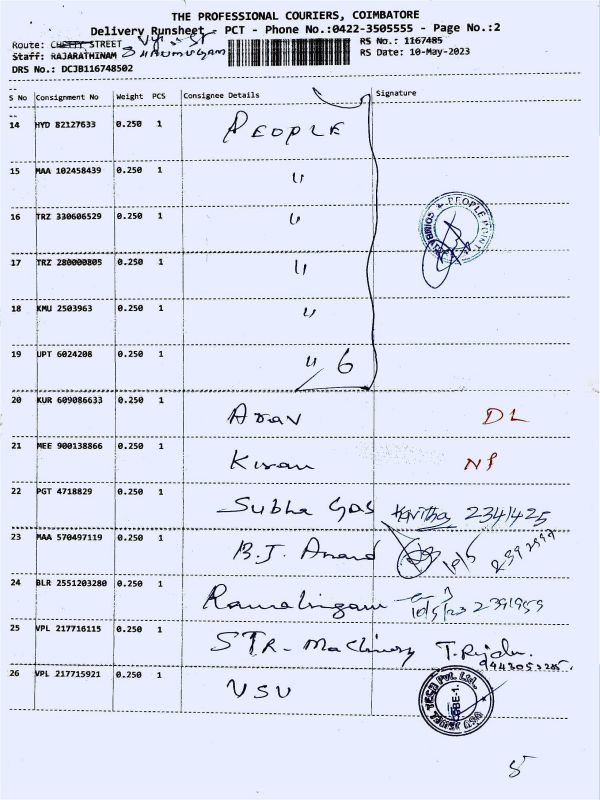 THE PROFESSIONAL COURIERS, COIMBATORE
Delivery Runsheet - PCT - Phone No.:0422-3505555 - Page No.:2
Route: CHETTY STREET
RS No.: 1167485
Staff: RAJARATHINAM SHANMUGAM
RS Date: 10-May-2023
DRS No.: DCJB116748502
S No Consignment No Weight PCS Consignee Details Signature
14 HYD 82127633 0.250 1 PEOPLE
15 MAA 102458439 0.250 1 "
16 TRZ 330606529 0.250 1 "
PEOPLE POINT
17 TRZ 280000805 0.250 1 "
18 KMU 2503963 0.250 1 "
19 UPT 6024208 0.250 1 " 6
20 KUR 609086633 0.250 1 Arav DL
21 MEE 900138866 0.250 1 Kiran NP
22 PGT 4718829 0.250 1 Subha Gas Kavitha 2341425
23 MAA 570497119 0.250 1 B.J. Anand 10/5
24 BLR 2551203280 0.250 1 Ramalingam 2391959
25 VPL 217716115 0.250 1 STR- Machinery
26 VPL 217715921 0.250 1 VSU
TECH Pvt. Ltd.
CBE-1.